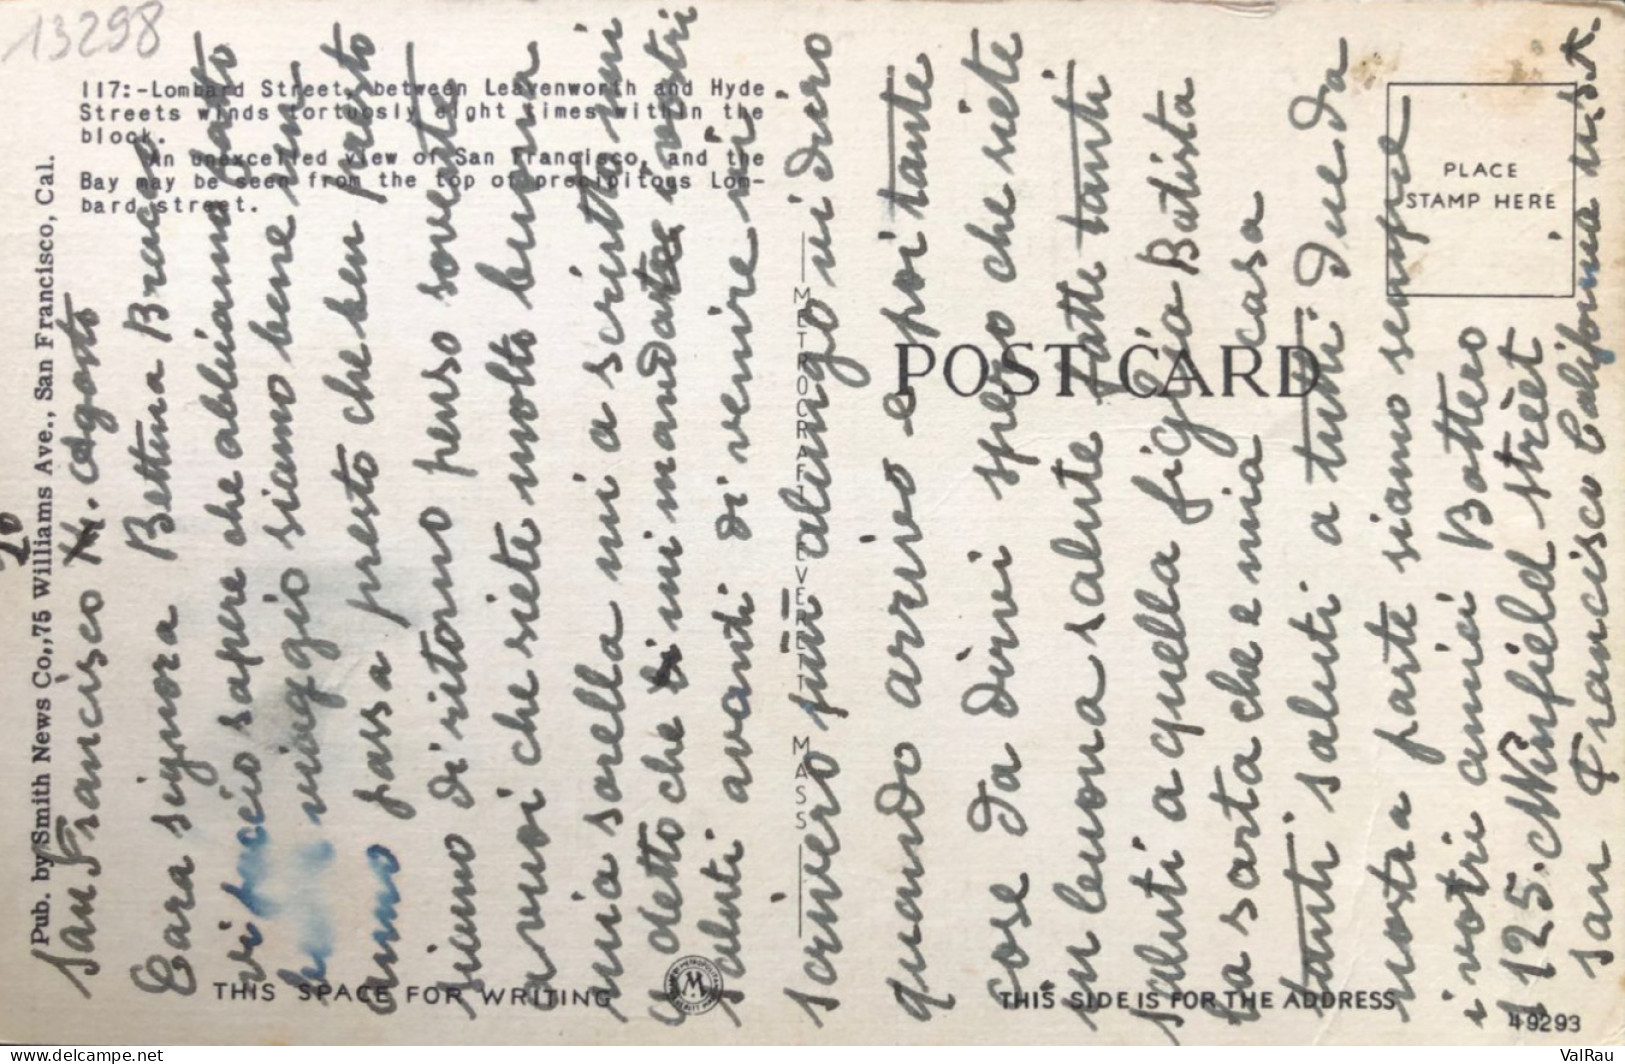 13298
117:-Lombard Street, between Leavenworth and Hyde
Streets winds tortuosly eight times within the
block.
An unexcelled view of San Francisco, and the
Bay may be seen from the top of precipitous Lom-
bard street.
Pub. by Smith News Co., 75 Williams Ave., San Francisco, Cal.
METROCRAFT EVERETT MASS
POST CARD
PLACE
STAMP HERE
THIS SPACE FOR WRITING
THIS SIDE IS FOR THE ADDRESS
49293
20
San Francisco Agosto
Cara signora Bettina
vi faccio sapere che abbiamo fatto
viaggio siamo bene un
anno passa presto che ben presto
siamo di ritorno penso sovento
a vuoi che siete molto buona
mia sorella mi a scritto mi
a detto che mi mandate i vostri
saluti avanti di venire vi
scrivero piu alungo vi diro
quando arrivo e poi tante
cose da dirvi spero che siete
in buona salute fatte tanti
saluti a quella figlia Batista
la sarta che e mia casa
tanti saluti a tutti due da
nostra parte siamo sempre
i votri amici Bottero
125. Winfield strèet
San Francisco California
ValRau